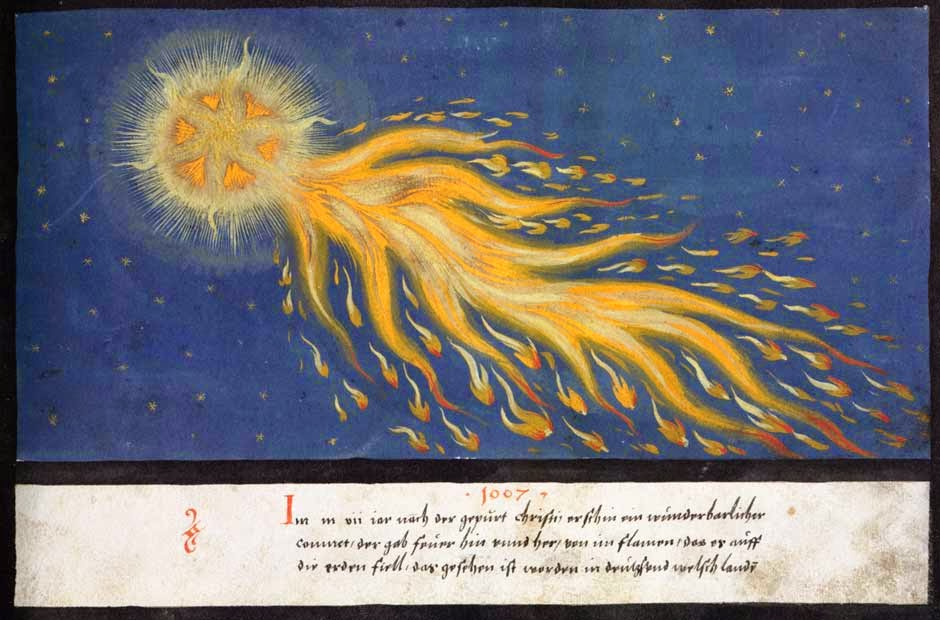 · 1007 ·
Im m vii iar nach der gepurt Christi, erschin ein wunderbarlicher
commet, der gab feuer hin unnd her, von im flamen, das es auff
die erden fiell, das gesehen ist worden in deutsch und welsch lande